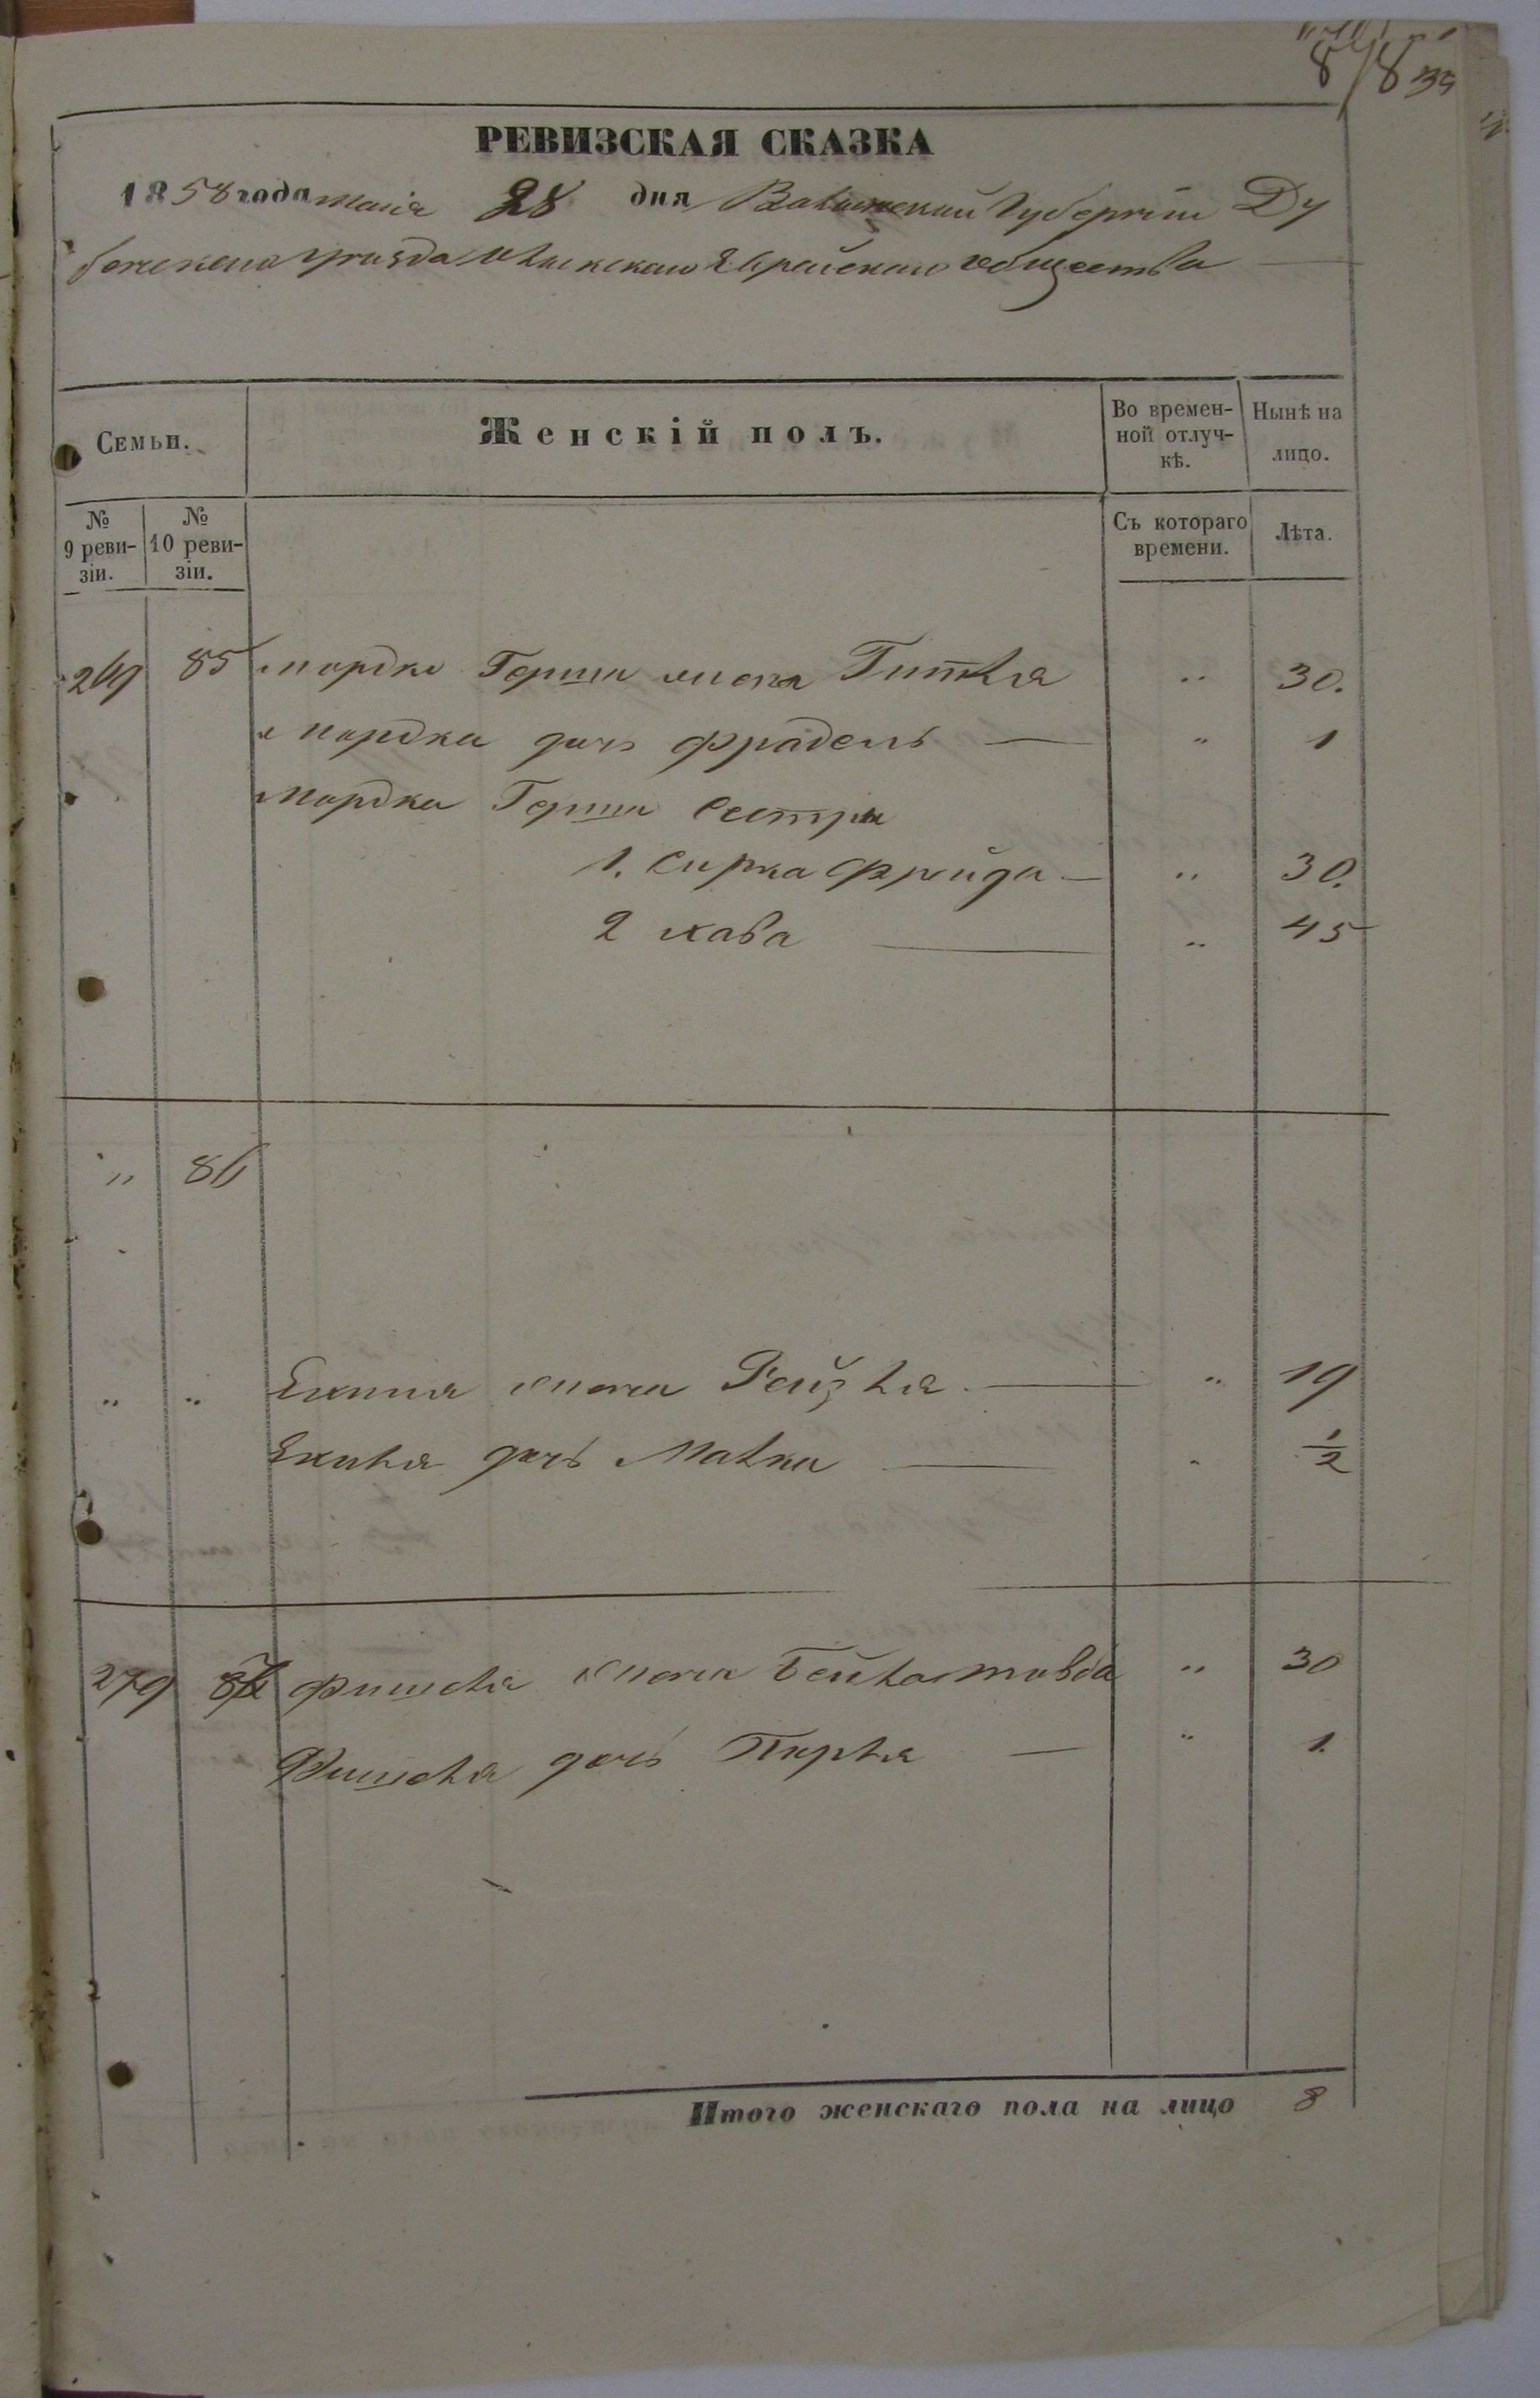 878 35
РЕВИЗСКАЯ СКАЗКА
1858 года маія 28 дня Волынской Губерніи Ду
бенскаго уѣзда Олыкскаго Еврейскаго общества
Семьи.
Женскій полъ.
Во времен-
ной отлуч-
кѣ.
Нынѣ на
лицо.
№
9 реви-
зіи.
№
10 реви-
зіи.
Съ котораго
времени.
Лѣта.
269 85 Мордко Герша жена Гитля " 30.
Мордка дочь Фрадель — " 1
Мордка Герша Сестры
1. Сирка Фрейда — " 30.
2 Хава — " 45
" 86
" " жена Рейзля — " 19
дочь Малка — " 1/2
279 87 Фишеля жена Бейла " 30
Фишеля дочь Перля — " 1.
Итого женскаго пола на лицо 8